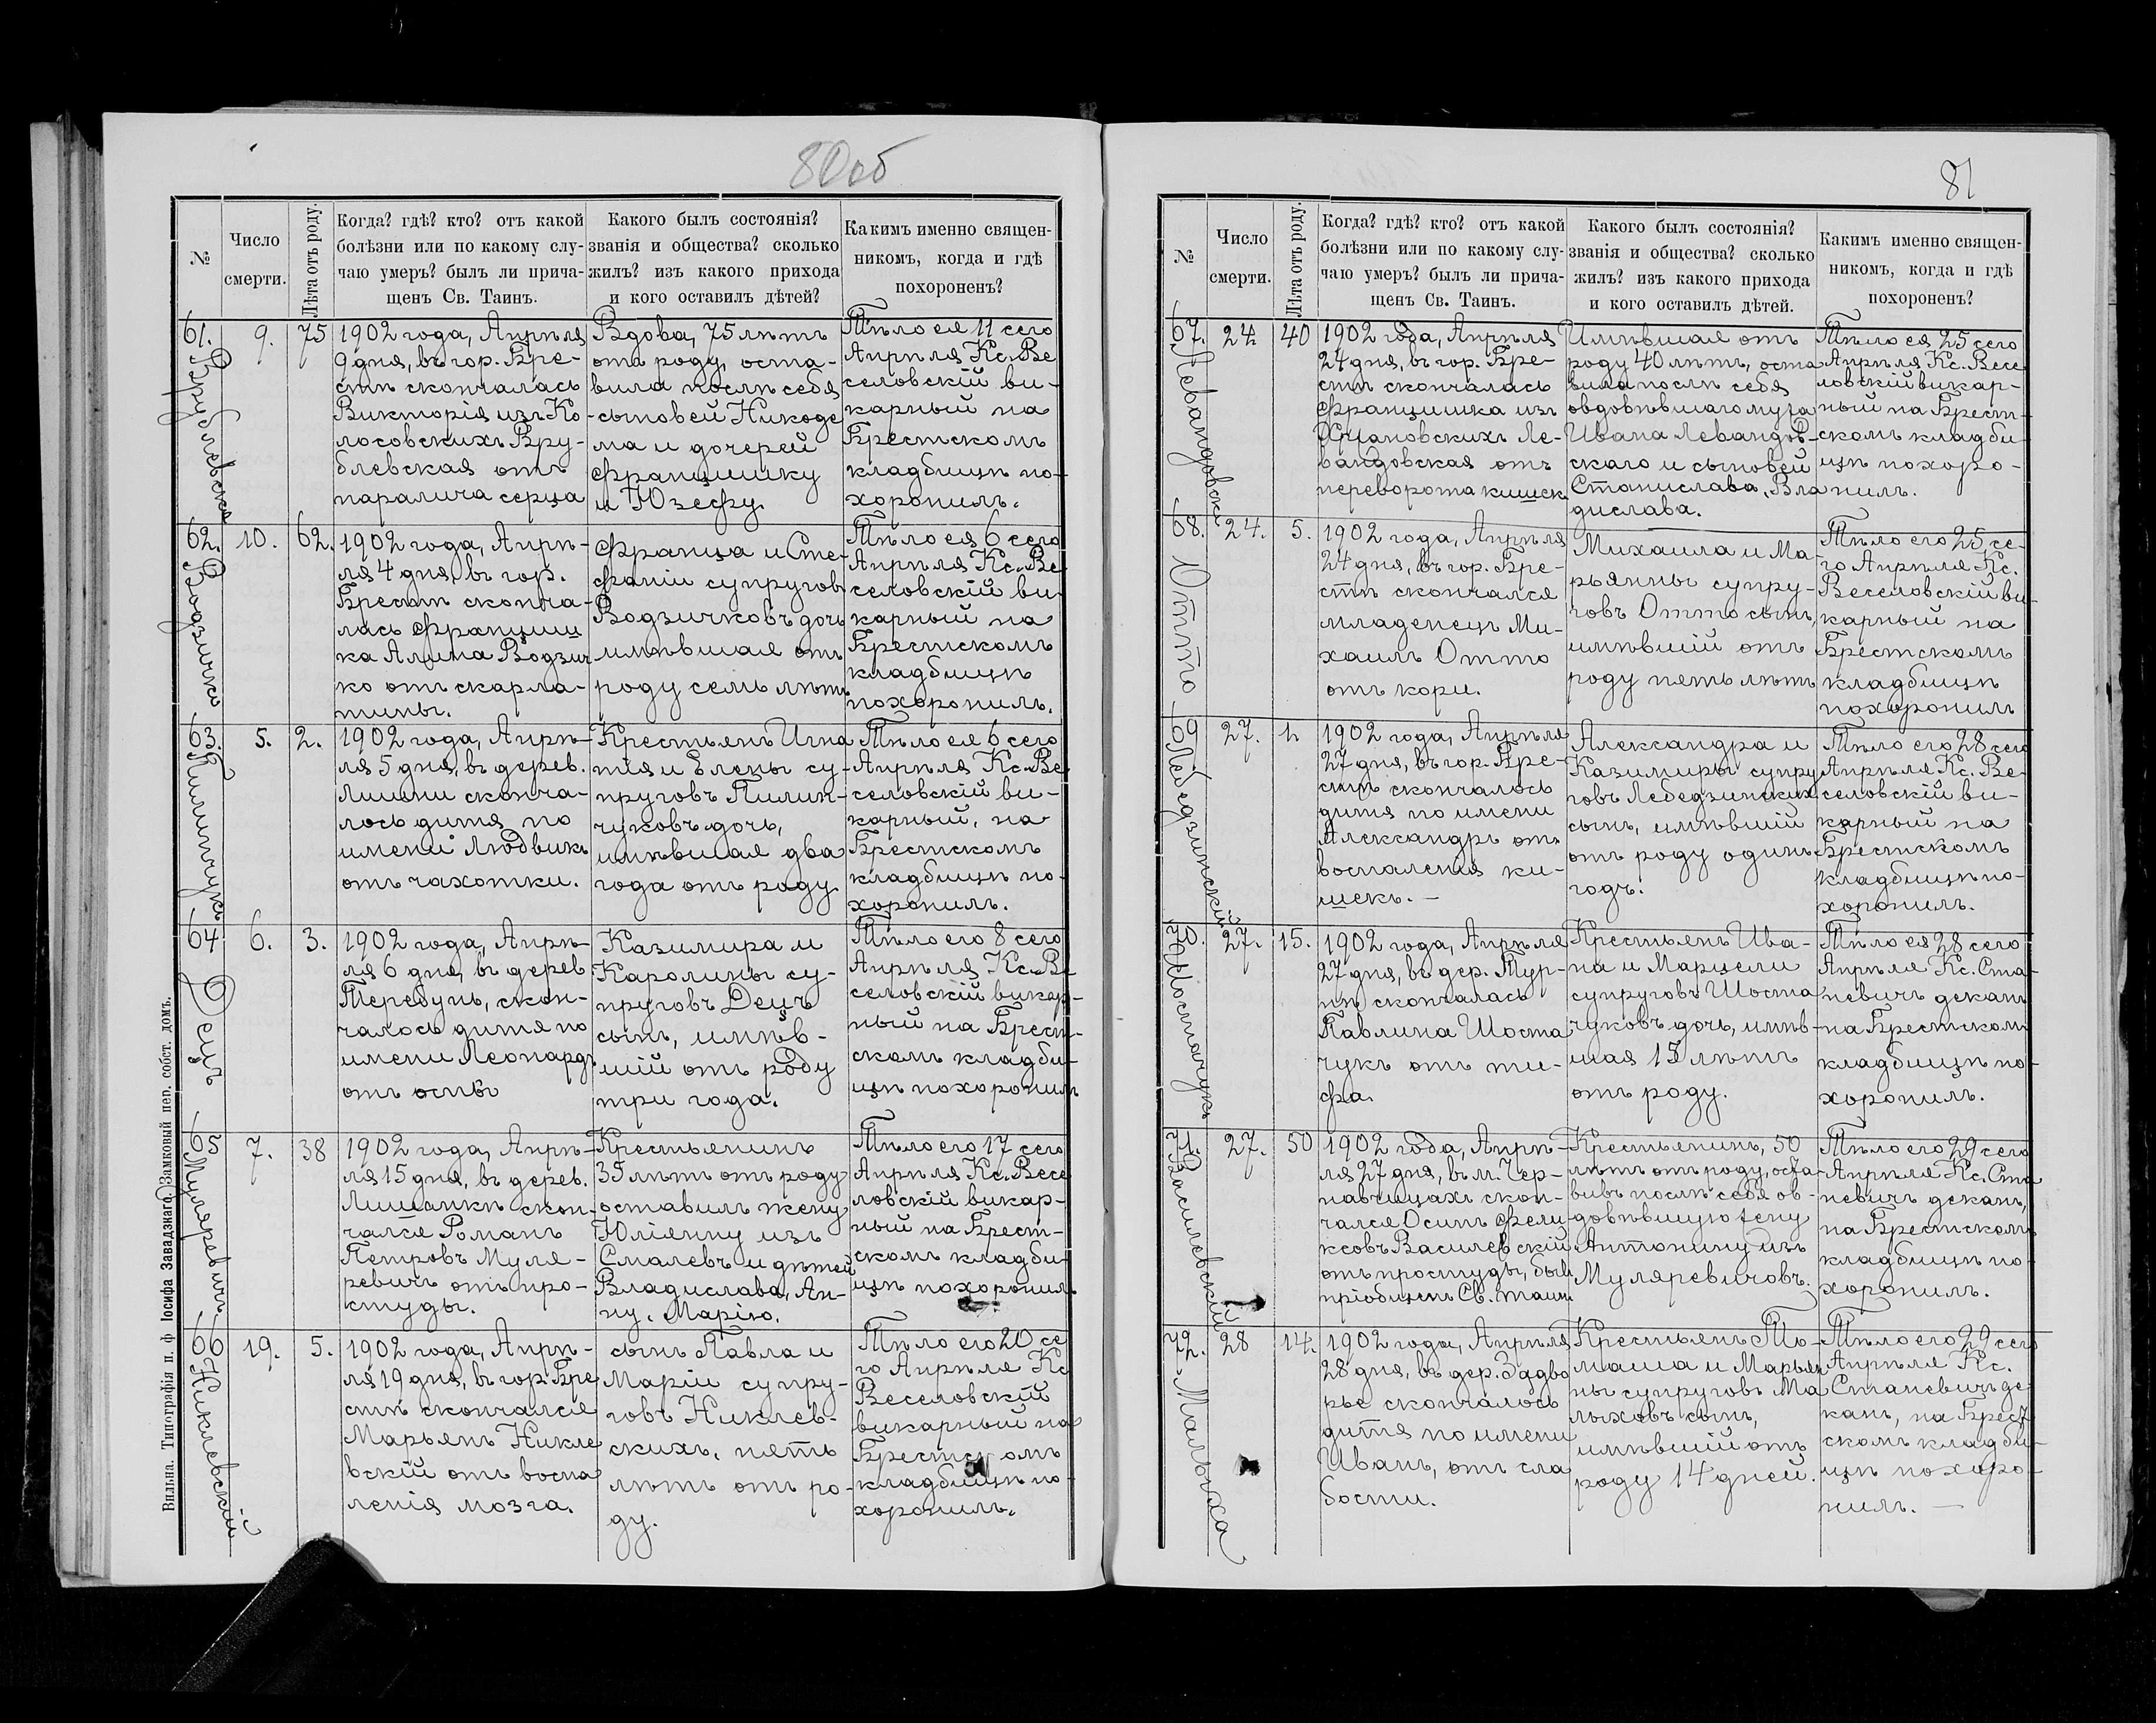 80об
№
Число
смерти.
Лѣта отъ роду.
Когда? гдѣ? кто? отъ какой
болѣзни или по какому слу-
чаю умеръ? былъ ли прича-
щенъ Св. Таинъ.
Какого былъ состоянія?
званія и общества? сколько
жилъ? изъ какого прихода
и кого оставилъ дѣтей?
Какимъ именно священ-
никомъ, когда и гдѣ
похороненъ?
61.
Врублевская
9.
75
1902 года, Апрѣля
9 дня, въ гор. Бре-
стѣ скончалась
Викторія изъ Ко-
лосовскихъ Вру-
блевская отъ
паралича серца
Вдова, 75 лѣтъ
отъ роду, оста-
вила послѣ себя
сыновей Никоде
ма и дочерей
Францишку
и Юзефу.
Тѣло ея 11 сего
Апрѣля Кс. Ве
селовскій ви-
карный на
Брестскомъ
кладбищѣ по-
хоронилъ.
62.
Водзичко
10.
62.
1902 года, Апрѣ-
ля 4 дня, въ гор.
Брестѣ сконча-
лась Франциш
ка Алина Водзич
ко отъ скарла-
тины.
Франца и Сте-
фаніи супруговъ
Водзичковъ дочь
имѣвшая отъ
роду семь лѣтъ
Тѣло ея 6 сего
Апрѣля Кс. Ве
селовскій ви-
карный на
Брестскомъ
кладбищѣ
похоронилъ.
63.
Пилипчукъ
5.
2.
1902 года, Апрѣ-
ля 5 дня, въ дерев.
Лишни сконча-
лось дитя по
имени Людвика
отъ чахотки.
Крестьянъ Игна
тія и Елены су-
пруговъ Пилип-
чуковъ дочь,
имѣвшая два
года отъ роду
Тѣло ея 6 сего
Апрѣля Кс. Ве
селовскій ви-
карный, на
Брестскомъ
кладбищѣ по-
хоронилъ.
64
Децъ
6.
3.
1902 года, Апрѣ-
ля 6 дня, въ дерев
Теребунь, скон-
чалось дитя по
имени Леонардъ
отъ оспы
Казимира и
Каролины су-
пруговъ Децъ
сынъ, имѣв-
шій отъ роду
три года.
Тѣло его 8 сего
Апрѣля Кс. Ве
селовскій викар-
ный на Брест-
скомъ кладби-
щѣ похоронилъ
65
Муляревичъ
7.
38
1902 года, Апрѣ-
ля 15 дня, въ дерев.
Лищанки скон-
чался Романъ
Петровъ Муля-
ревичъ отъ про-
студы.
Крестьянинъ
35 лѣтъ отъ роду
оставилъ жену
Юліянну изъ
Смалевъ и дѣтей
Владислава, Ан-
ну, Марію.
Тѣло его 17 сего
Апрѣля Кс. Весе
ловскій викар-
ный на Брест-
скомъ кладби-
щѣ похоронилъ
66
Никлевскій
19.
5.
1902 года, Апрѣ-
ля 19 дня, въ гор. Бре
стѣ скончался
Марьянъ Никле
вскій отъ воспа
ленія мозга.
сынъ Павла и
Маріи супру-
говъ Никлев-
скихъ, пять
лѣтъ отъ ро-
ду.
Тѣло его 20 се
го Апрѣля Кс
Веселовскій
викарный на
Брестскомъ
кладбищѣ по-
хоронилъ.
Вильна. Типографія п. ф. Іосифа Завадзкаго. Замковый пер. собст. домъ.
81
№
Число
смерти.
Лѣта отъ роду.
Когда? гдѣ? кто? отъ какой
болѣзни или по какому слу-
чаю умеръ? былъ ли прича-
щенъ Св. Таинъ.
Какого былъ состоянія?
званія и общества? сколько
жилъ? изъ какого прихода
и кого оставилъ дѣтей.
Какимъ именно священ-
никомъ, когда и гдѣ
похороненъ?
67.
Левандовска
24
40
1902 года, Апрѣля
24 дня, въ гор. Бре-
стѣ скончалась
Францишка изъ
Хржановскихъ Ле-
вандовская отъ
переворота кишек
Имѣвшая отъ
роду 40 лѣтъ, оста
вила послѣ себя
овдовѣвшаго мужа
Ивана Левандов-
скаго и сыновей
Станислава, Вла
дислава.
Тѣло ея 25 сего
Апрѣля Кс. Весе
ловскій викар-
ный на Брест-
скомъ кладби
щѣ похоро-
нилъ.
68.
Отто
24.
5.
1902 года, Апрѣля
24 дня, въ гор. Бре-
стѣ скончался
младенецъ Ми-
хаилъ Отто
отъ кори.
Михаила и Ма-
рьянны супру-
говъ Отто сынъ,
имѣвшій отъ
роду пять лѣтъ
Тѣло его 25 се-
го Апрѣля Кс.
Веселовскій ви-
карный на
Брестскомъ
кладбищѣ
похоронилъ
69
Лебедзинскій
27.
1
1902 года, Апрѣля
27 дня, въ гор. Бре-
стѣ скончалось
дитя по имени
Александръ отъ
воспаленія ки-
шекъ. -
Александра и
Казимиры супру
говъ Лебедзинских
сынъ, имѣвшій
отъ роду одинъ
годъ.
Тѣло его 28 сего
Апрѣля Кс. Ве-
селовскій ви-
карный на
Брестскомъ
кладбищѣ по-
хоронилъ.
70.
Шостачукъ
27.
15.
1902 года, Апрѣля
27 дня, въ дер. Тур-
нѣ скончалась
Павлина Шоста
чукъ отъ ти-
фа.
Крестьянъ Ива-
на и Марцели
супруговъ Шоста
чуковъ дочь, имѣв-
шая 15 лѣтъ
отъ роду.
Тѣло ея 28 сего
Апрѣля Кс. Ста-
невичъ деканъ
на Брестском
кладбищѣ по-
хоронилъ.
71.
Василевскій
27.
50
1902 года, Апрѣ-
ля 27 дня, въ м. Чер-
навчицахъ скон-
чался Осипъ Фели
ксовъ Василевскій
отъ простуды, былъ
пріобщенъ Св. таин
Крестьянинъ, 50
лѣтъ отъ роду, оста
вивъ послѣ себя ов-
довѣвшую жену
Антонину изъ
Муляревичовъ.
Тѣло его 29 сего
Апрѣля Кс. Ста
невичъ деканъ,
на Брестскомъ
кладбищѣ по-
хоронилъ.
72.
Малыха
28
14.
1902 года, Апрѣля
28 дня, въ дер. Задво
рье скончалось
дитя по имени
Иванъ, отъ сла
бости.
Крестьянъ То-
маша и Марьян
ны супруговъ Ма
лыховъ сынъ,
имѣвшій отъ
роду 14 дней.
Тѣло его 29 сего
Апрѣля Кс.
Станевичъ де
канъ, на Брест
скомъ кладби-
щѣ похоро-
нилъ. -